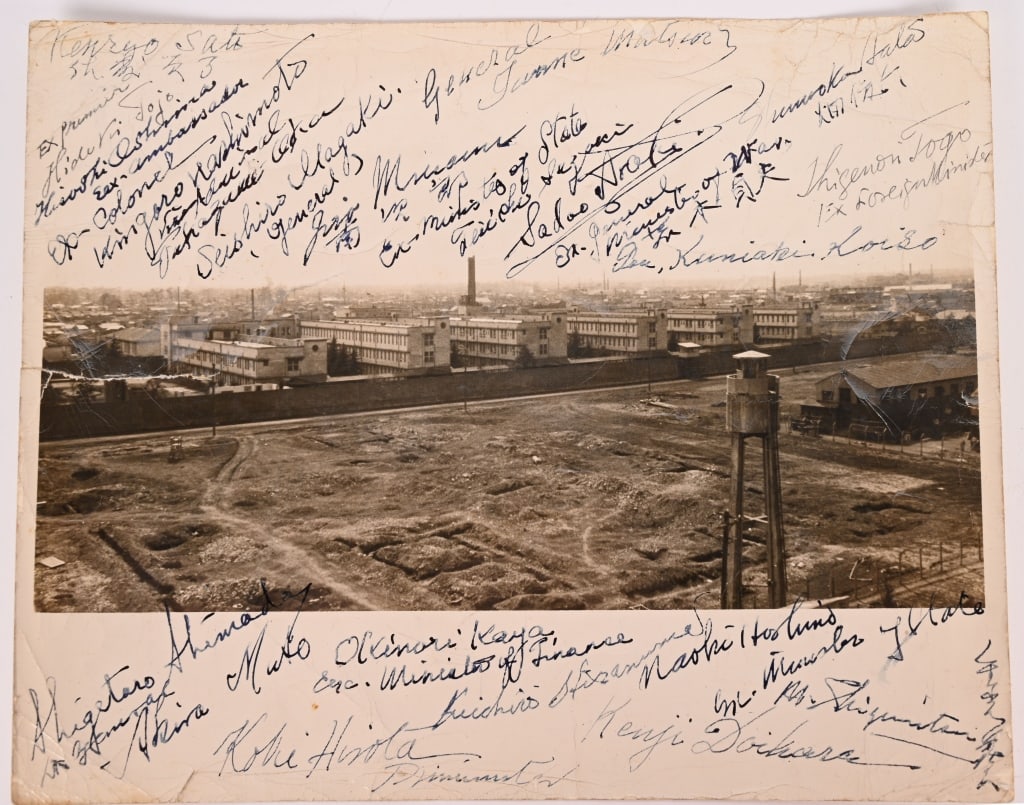 Kenryo Sato
Ex Premier
Hideki Tojo
Hiroshi Oshima
Ex-ambassador
Ex-Colonel
Kingoro Hashimoto
Takazumi Oka
Seishiro Itagaki.
General
General
Iwane Matsui
Jiro Minami
Ex. Minister of State
Teiichi Suzuki
Sadao Araki
Ex. General
Minister of War.
Shunroku Hata
Shigenori Togo
Ex Foreign Minister
Kuniaki Koiso
Shigetaro Shimada
Akira Muto
Okinori Kaya
Ex. Minister of Finance
Kiichiro Hiranuma
Naoki Hoshino
Ex. Minister of State
M. Shigemitsu
Koki Hirota
Kenji Doihara